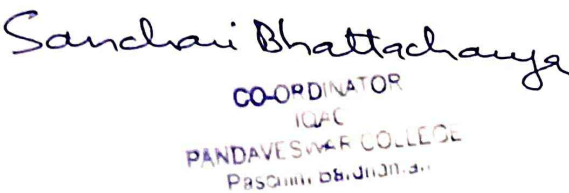 Sanchari Bhattacharya
CO-ORDINATOR
IQAC
PANDAVESWAR COLLEGE
Paschim Bardhaman